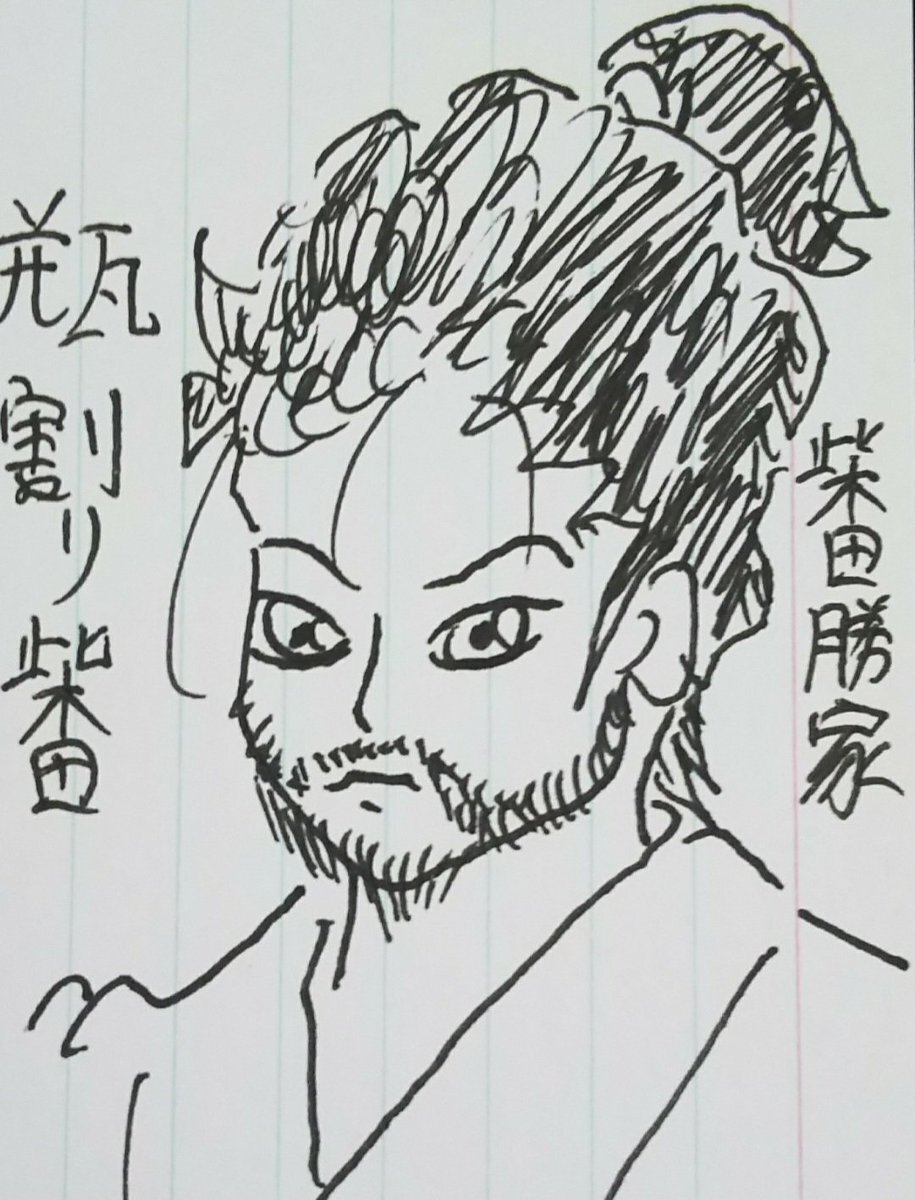 柴田勝家
瓶割り柴田